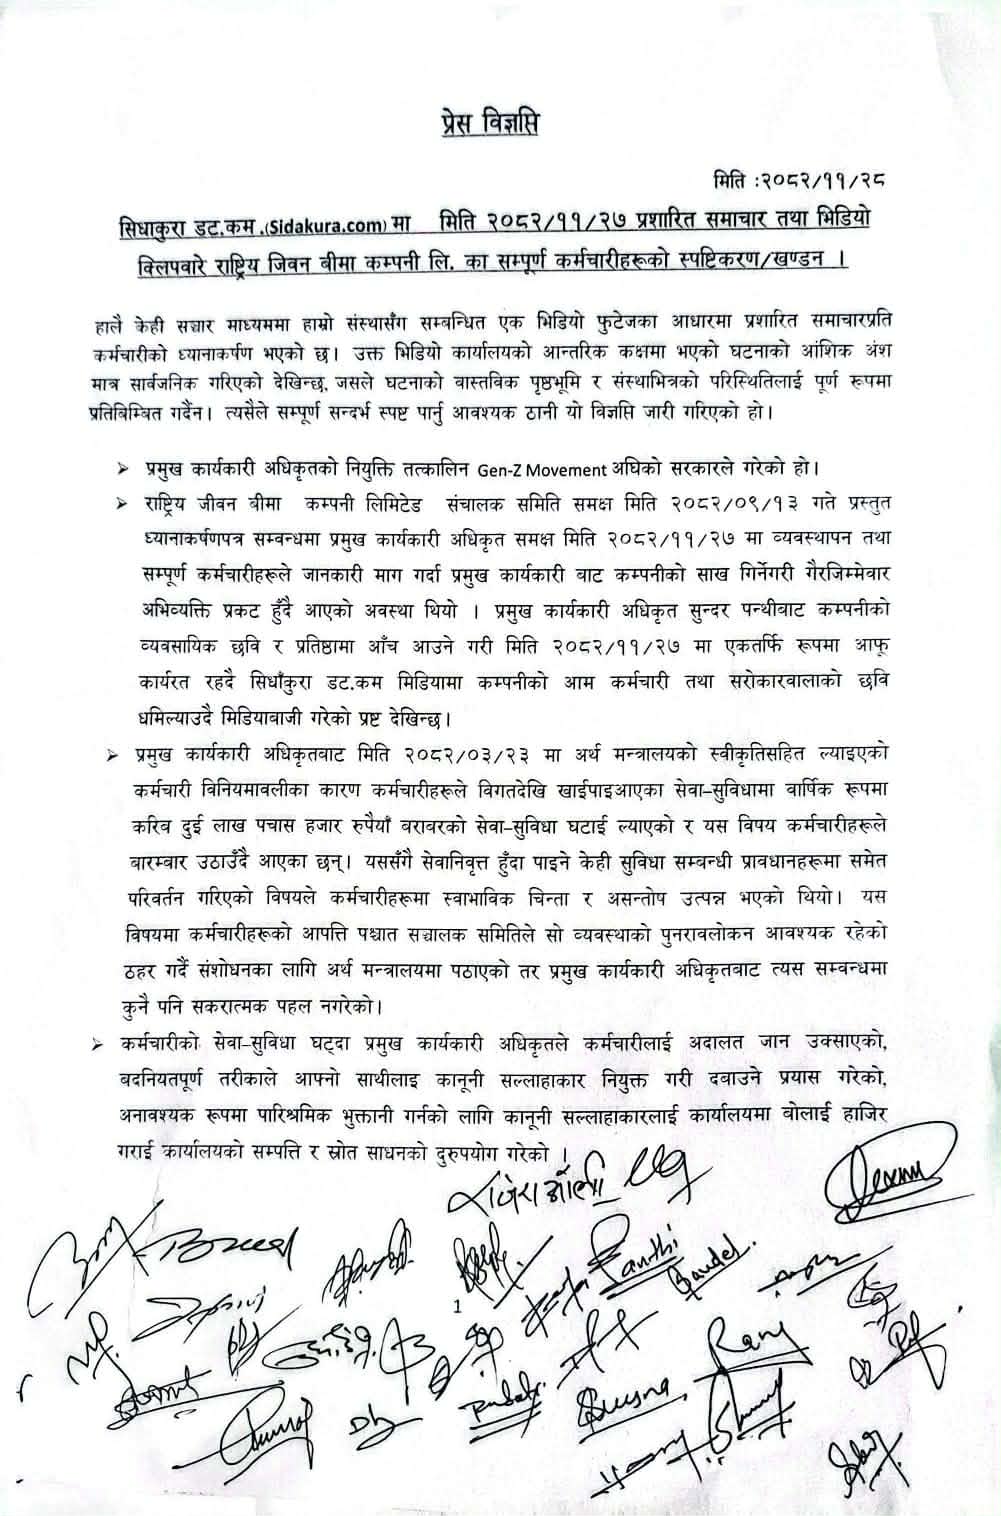 प्रेस विज्ञप्ति
मिति :२०८२/११/२८
सिधाकुरा डट.कम.(Sidakura.com) मा मिति २०८२/११/२७ प्रशारित समाचार तथा भिडियो
क्लिपवारे राष्ट्रिय जिवन बीमा कम्पनी लि. का सम्पूर्ण कर्मचारीहरूको स्पष्टिकरण/खण्डन ।
हालै केही सञ्चार माध्यममा हाम्रो संस्थासँग सम्बन्धित एक भिडियो फुटेजका आधारमा प्रशारित समाचारप्रति
कर्मचारीको ध्यानाकर्षण भएको छ। उक्त भिडियो कार्यालयको आन्तरिक कक्षमा भएको घटनाको आंशिक अंश
मात्र सार्वजनिक गरिएको देखिन्छ, जसले घटनाको वास्तविक पृष्ठभूमि र संस्थाभित्रको परिस्थितिलाई पूर्ण रूपमा
प्रतिबिम्बित गर्दैन। त्यसैले सम्पूर्ण सन्दर्भ स्पष्ट पार्नु आवश्यक ठानी यो विज्ञप्ति जारी गरिएको हो।
➢ प्रमुख कार्यकारी अधिकृतको नियुक्ति तत्कालिन Gen-Z Movement अघिको सरकारले गरेको हो।
➢ राष्ट्रिय जीवन बीमा कम्पनी लिमिटेड संचालक समिति समक्ष मिति २०८२/०९/१३ गते प्रस्तुत
ध्यानाकर्षणपत्र सम्बन्धमा प्रमुख कार्यकारी अधिकृत समक्ष मिति २०८२/११/२७ मा व्यवस्थापन तथा
सम्पूर्ण कर्मचारीहरूले जानकारी माग गर्दा प्रमुख कार्यकारी बाट कम्पनीको साख गिर्नेगरी गैरजिम्मेवार
अभिव्यक्ति प्रकट हुँदै आएको अवस्था थियो । प्रमुख कार्यकारी अधिकृत सुन्दर पन्थीबाट कम्पनीको
व्यवसायिक छवि र प्रतिष्ठामा आँच आउने गरी मिति २०८२/११/२७ मा एकतर्फि रूपमा आफू
कार्यरत रहदै सिधाँकुरा डट.कम मिडियामा कम्पनीको आम कर्मचारी तथा सरोकारवालाको छवि
धमिल्याउदै मिडियावाजी गरेको प्रष्ट देखिन्छ।
➢ प्रमुख कार्यकारी अधिकृतबाट मिति २०८२/०३/२३ मा अर्थ मन्त्रालयको स्वीकृतिसहित ल्याइएको
कर्मचारी विनियमावलीका कारण कर्मचारीहरूले विगतदेखि खाईपाइआएका सेवा–सुविधामा वार्षिक रूपमा
करिव दुई लाख पचास हजार रुपैयाँ वरावरको सेवा–सुविधा घटाई ल्याएको र यस विषय कर्मचारीहरूले
बारम्बार उठाउँदै आएका छन्। यससँगै सेवानिवृत्त हुँदा पाइने केही सुविधा सम्बन्धी प्रावधानहरूमा समेत
परिवर्तन गरिएको विषयले कर्मचारीहरूमा स्वाभाविक चिन्ता र असन्तोष उत्पन्न भएको थियो। यस
विषयमा कर्मचारीहरूको आपत्ति पश्चात सञ्चालक समितिले सो व्यवस्थाको पुनरावलोकन आवश्यक रहेको
ठहर गर्दै संशोधनका लागि अर्थ मन्त्रालयमा पठाएको तर प्रमुख कार्यकारी अधिकृतबाट त्यस सम्वन्धमा
कुनै पनि सकरात्मक पहल नगरेको।
➢ कर्मचारीको सेवा–सुविधा घट्दा प्रमुख कार्यकारी अधिकृतले कर्मचारीलाई अदालत जान उक्साएको,
बदनियतपूर्ण तरीकाले आफ्नो साथीलाइ कानूनी सल्लाहाकार नियुक्त गरी दबाउने प्रयास गरेको,
अनावश्यक रूपमा पारिश्रमिक भुक्तानी गर्नको लागि कानूनी सल्लाहाकारलाई कार्यालयमा बोलाई हाजिर
गराई कार्यालयको सम्पत्ति र स्रोत साधनको दुरुपयोग गरेको ।
1